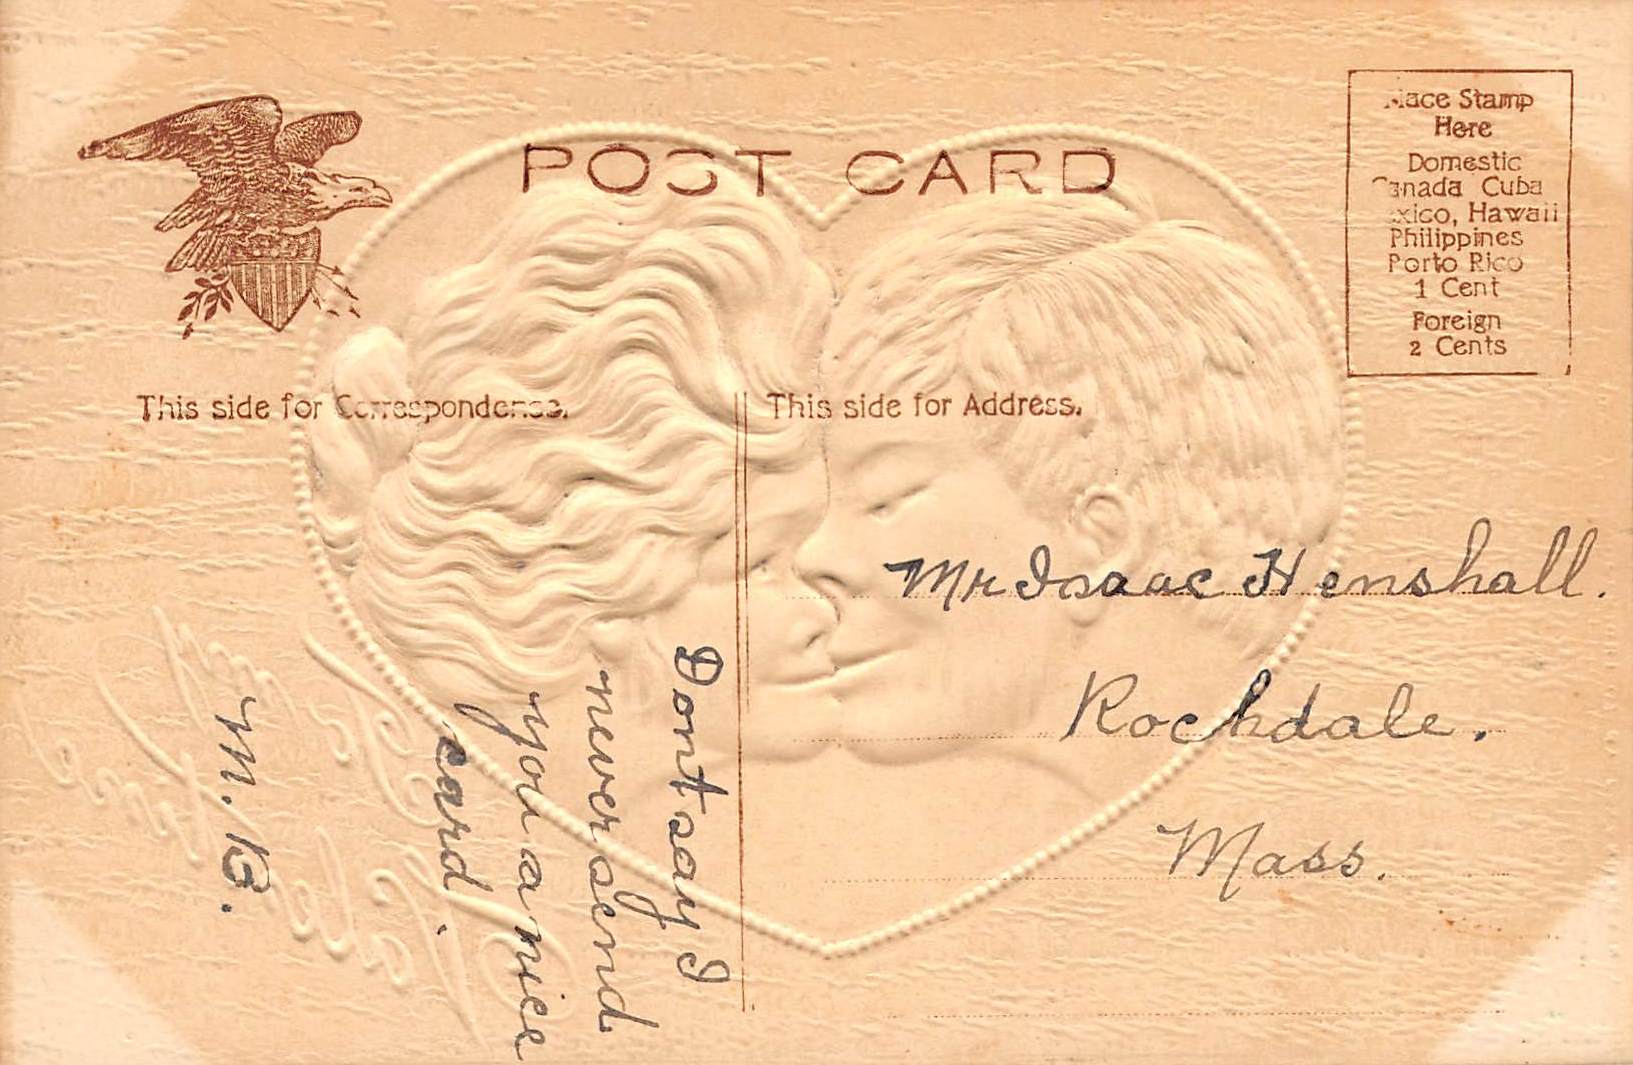 POST CARD
Place Stamp
Here
Domestic
Canada Cuba
Mexico, Hawaii
Philippines
Porto Rico
1 Cent
Foreign
2 Cents
This side for Correspondence.
This side for Address.
Dont say I
never send
you a nice
card.
M. B.
Mr Isaac Henshall.
Rochdale.
Mass.